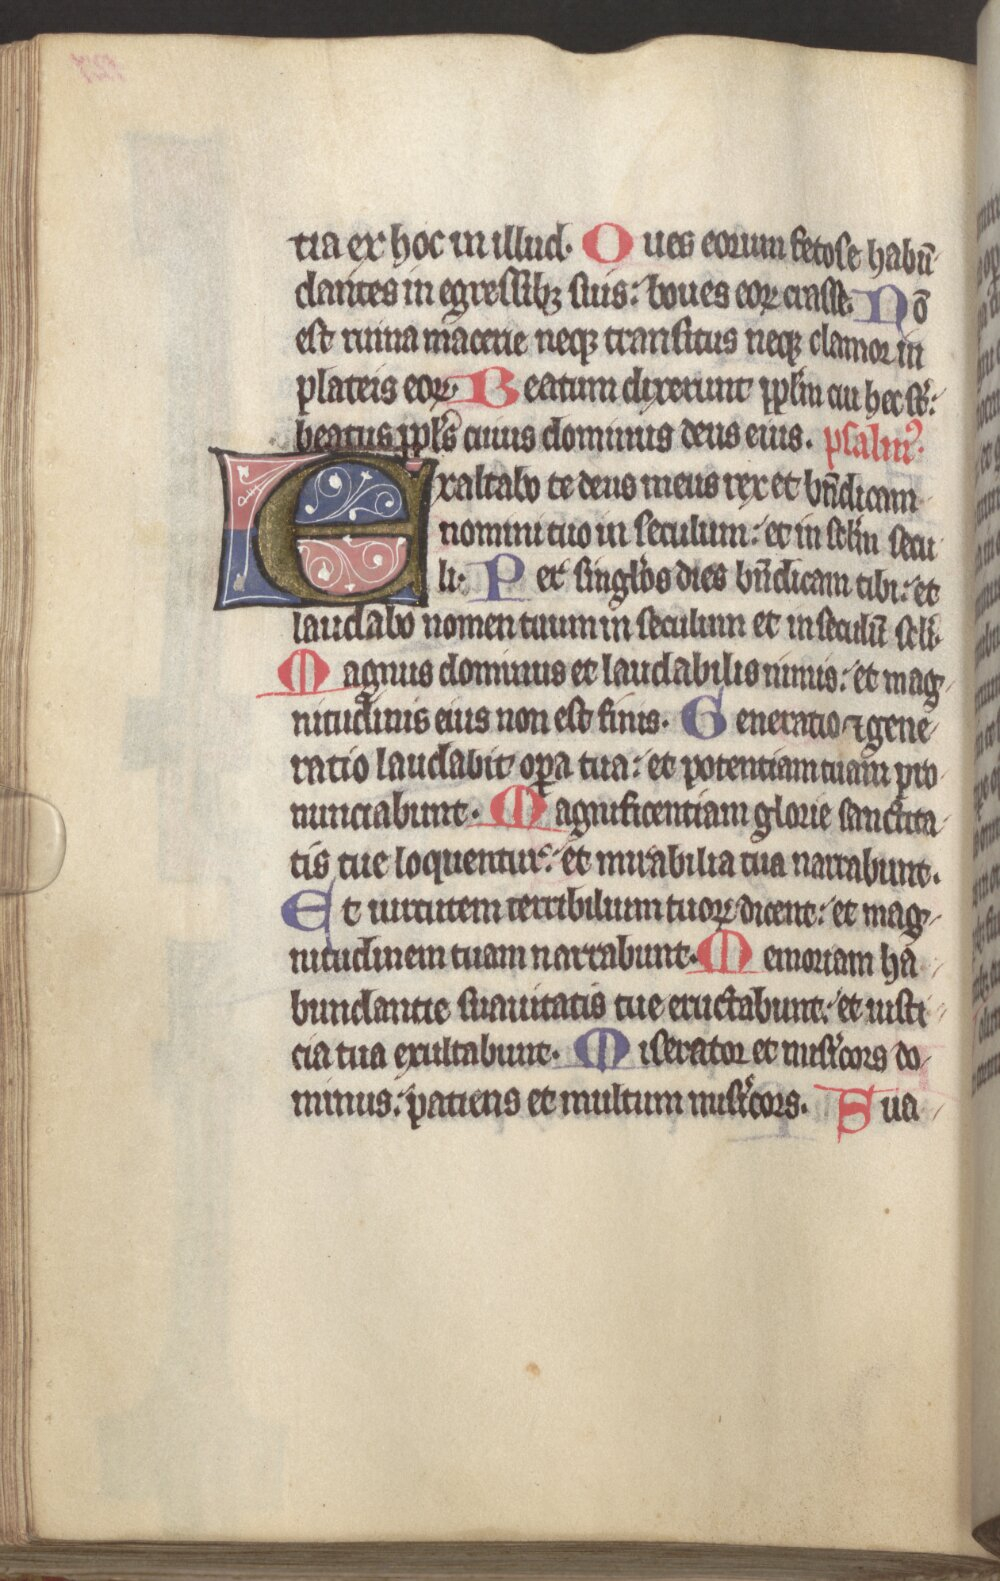 tia ex hoc in illud. Oues eorum fetose habū
dantes in egressibꝫ suis: boues eoꝝ crasse. Nō
est ruina macerie neqꝫ transitus neqꝫ clamor in
plateis eoꝝ. Beatum dixerunt ppl̄m cui hec st̄:
beatus ppl̄s cuius dominus deus eius. psalmꝰ.
Exaltabo te deus meus rex et bn̄dicam
nomini tuo in seculum: et in scl̄m secu
li. Per singl̄os dies bn̄dicam tibi: et
laudabo nomen tuum in seculum et in seculū scl̄i.
Magnus dominus et laudabilis nimis: et mag
nitudinis eius non est finis. Generatio ⁊ gene
ratio laudabit oꝑa tua: et potentiam tuam pro
nunciabunt. Magnificentiam glorie sanctita
tis tue loquentur: et mirabilia tua narrabunt.
Et uirtutem terribilium tuoꝝ dicent: et mag
nitudinem tuam narrabunt. Memoriam ha
bundantie suauitatis tue eructabunt: et iusti
cia tua exultabunt. Miserator et mis̄icors do
minus: patiens et multum mis̄icors. Sua